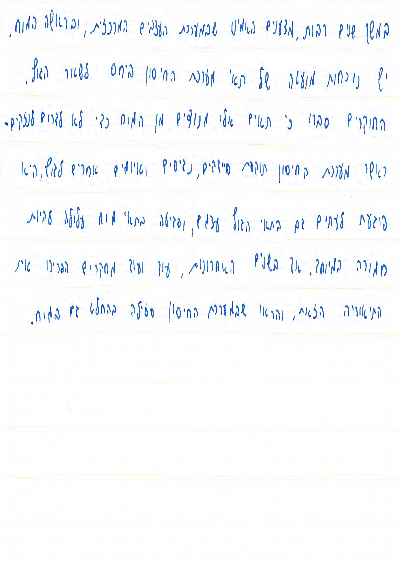 במשך שנים רבות, מדענים האמינו שבמערכת העצבים המרכזית, ובראשה המוח,
יש נוכחות מועטה של תאי מערכת החיסון ביחס לשאר הגוף.
החוקרים סברו כי תאים אלו מנודים מן המוח כדי לא לגרום לנזקים-
כאשר מערכת החיסון תוקפת חיידקים, נגיפים ואיומים אחרים לגוף, היא
פוגעת לעתים גם בתאי הגוף עצמם, ופגיעה בתאי מוח עלולה להיות
חמורה במיוחד. אך בשנים האחרונות, עוד ועוד מחקרים הפריכו את
התיאוריה הזאת, והראו שבמערכת החיסון פעילה בהחלט גם במוח.